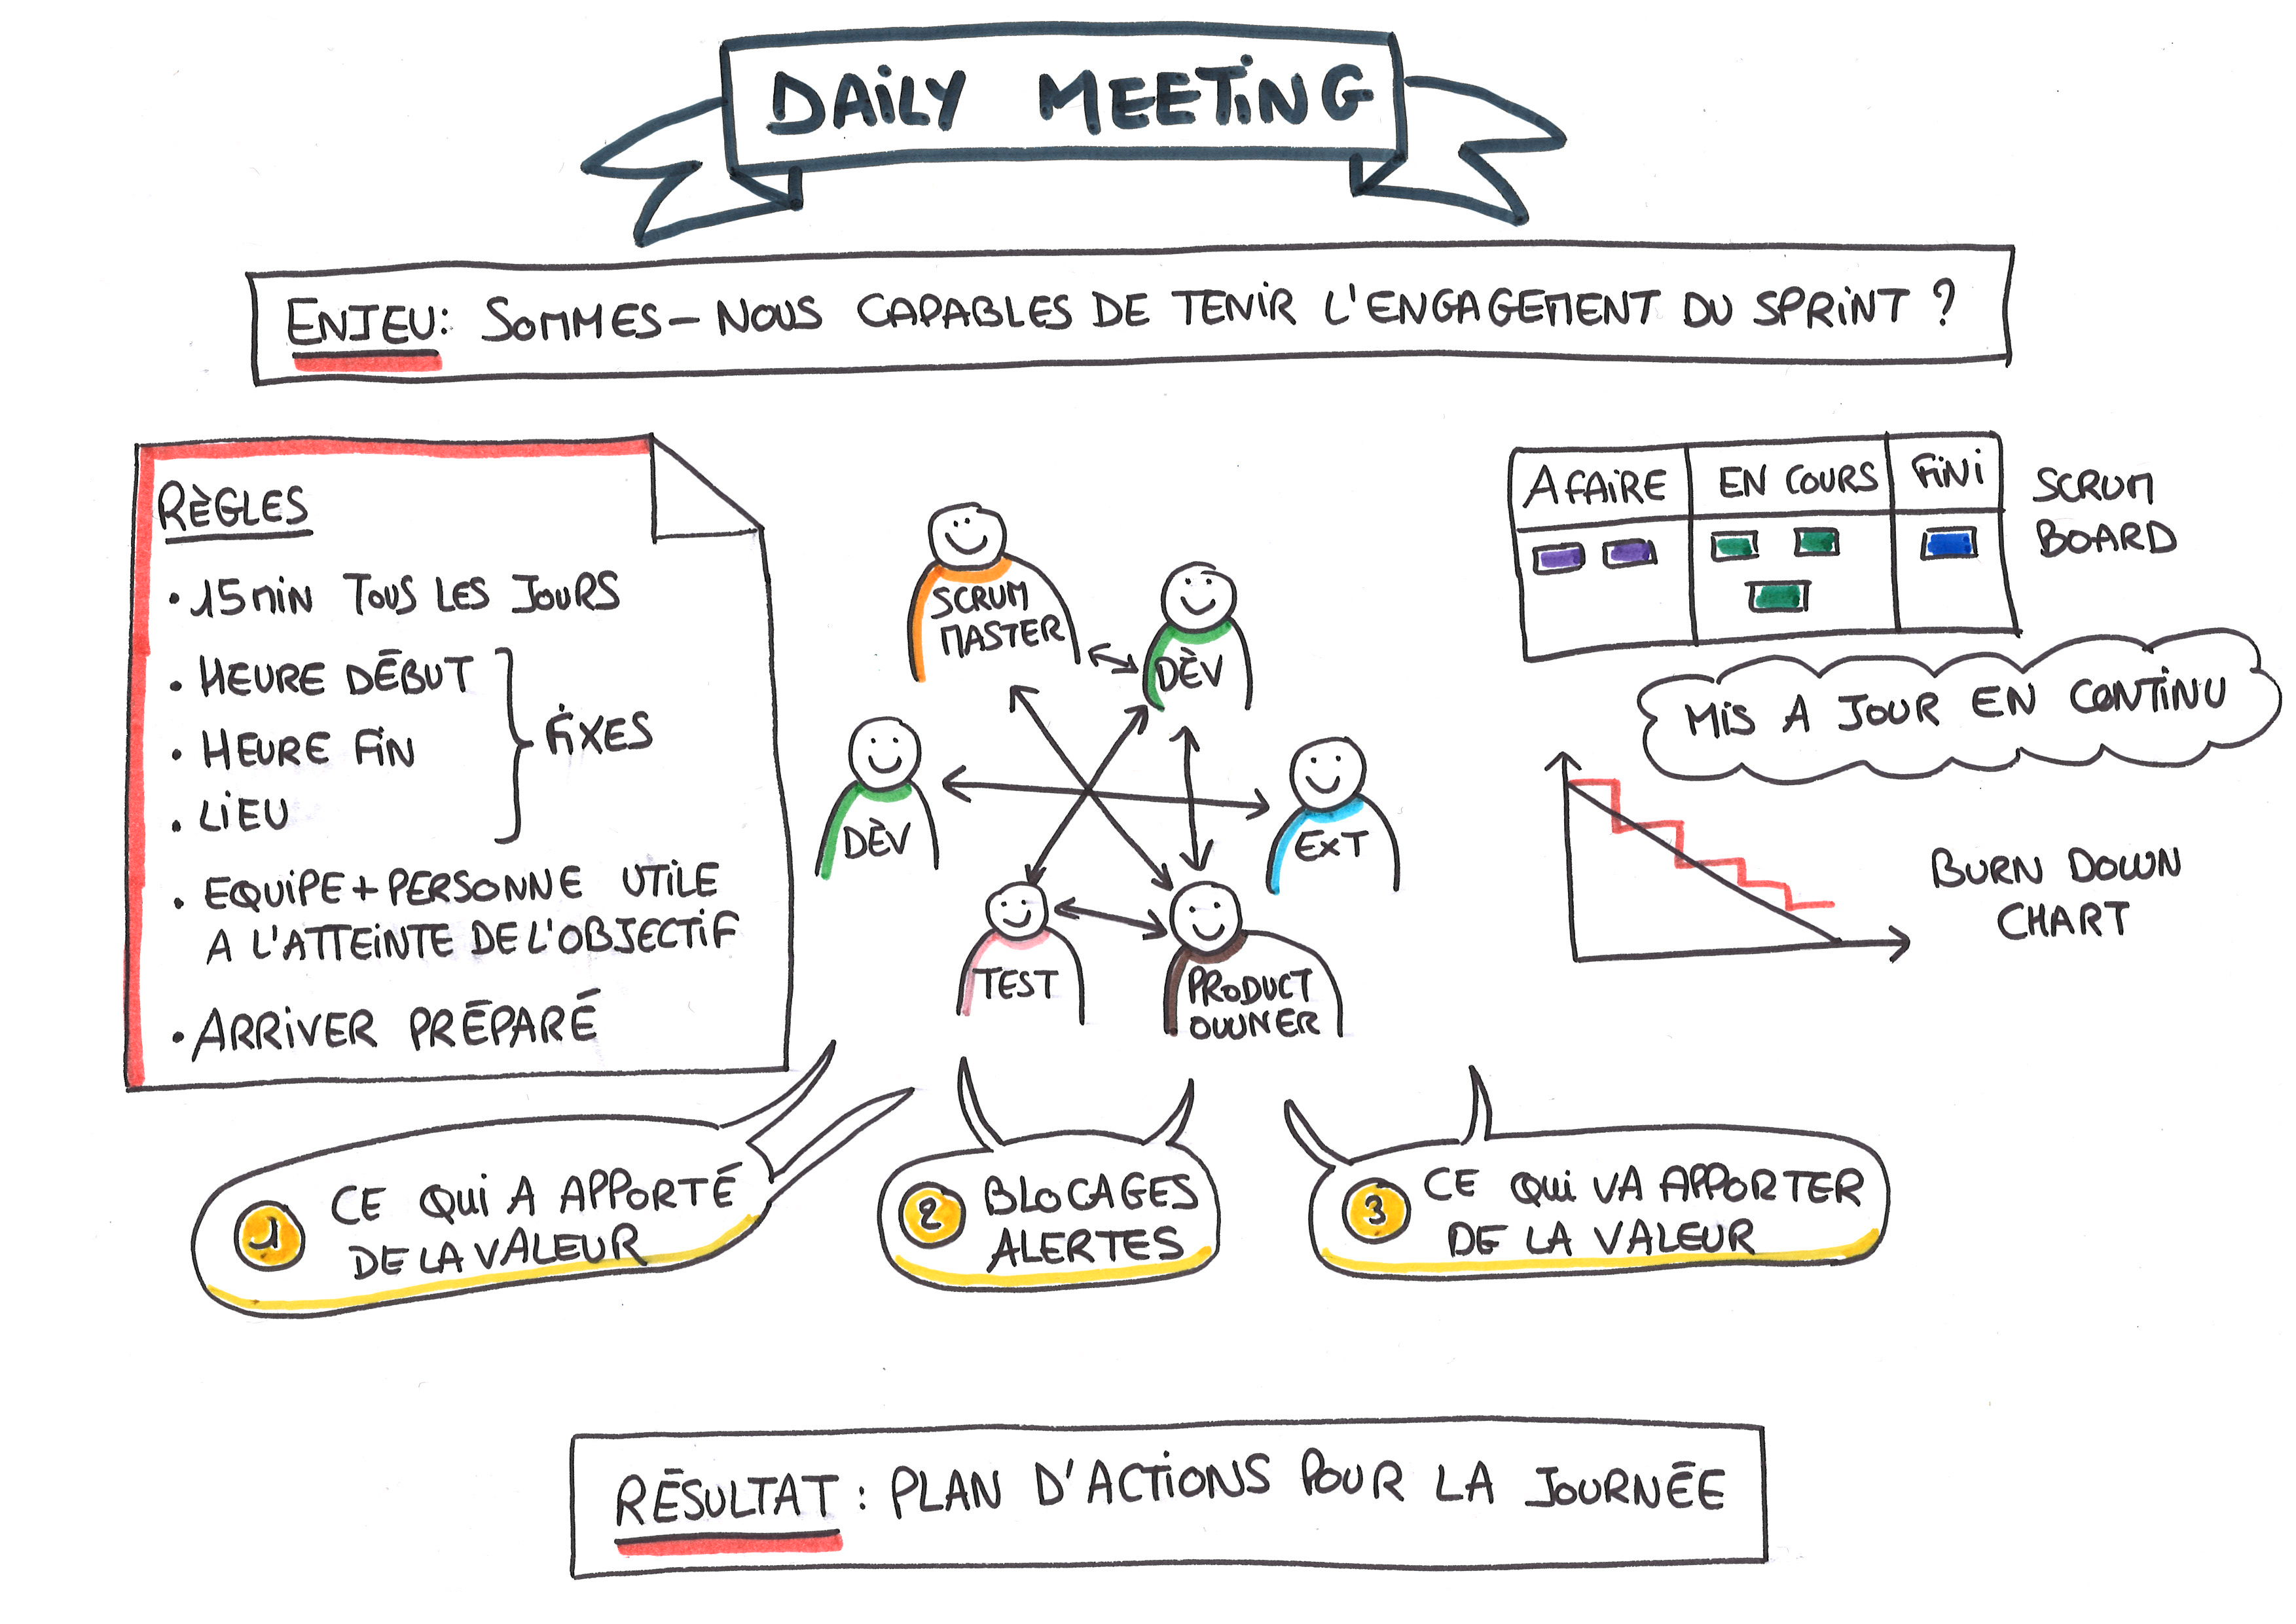 DAILY MEETING
ENJEU: SOMMES-NOUS CAPABLES DE TENIR L'ENGAGEMENT DU SPRINT ?
RÈGLES
• 15 MIN TOUS LES JOURS
• HEURE DÉBUT
• HEURE FIN
• LIEU
FIXES
• EQUIPE + PERSONNE UTILE
A L'ATTEINTE DE L'OBJECTIF
• ARRIVER PRÉPARÉ
SCRUM
MASTER
DÈV
DÈV
EXT
TEST
PRODUCT
OWNER
A FAIRE
EN COURS
FINI
SCRUM
BOARD
MIS A JOUR EN CONTINU
BURN DOWN
CHART
1 CE QUI A APPORTÉ
DE LA VALEUR
2 BLOCAGES
ALERTES
3 CE QUI VA APPORTER
DE LA VALEUR
RÉSULTAT : PLAN D'ACTIONS POUR LA JOURNÉE